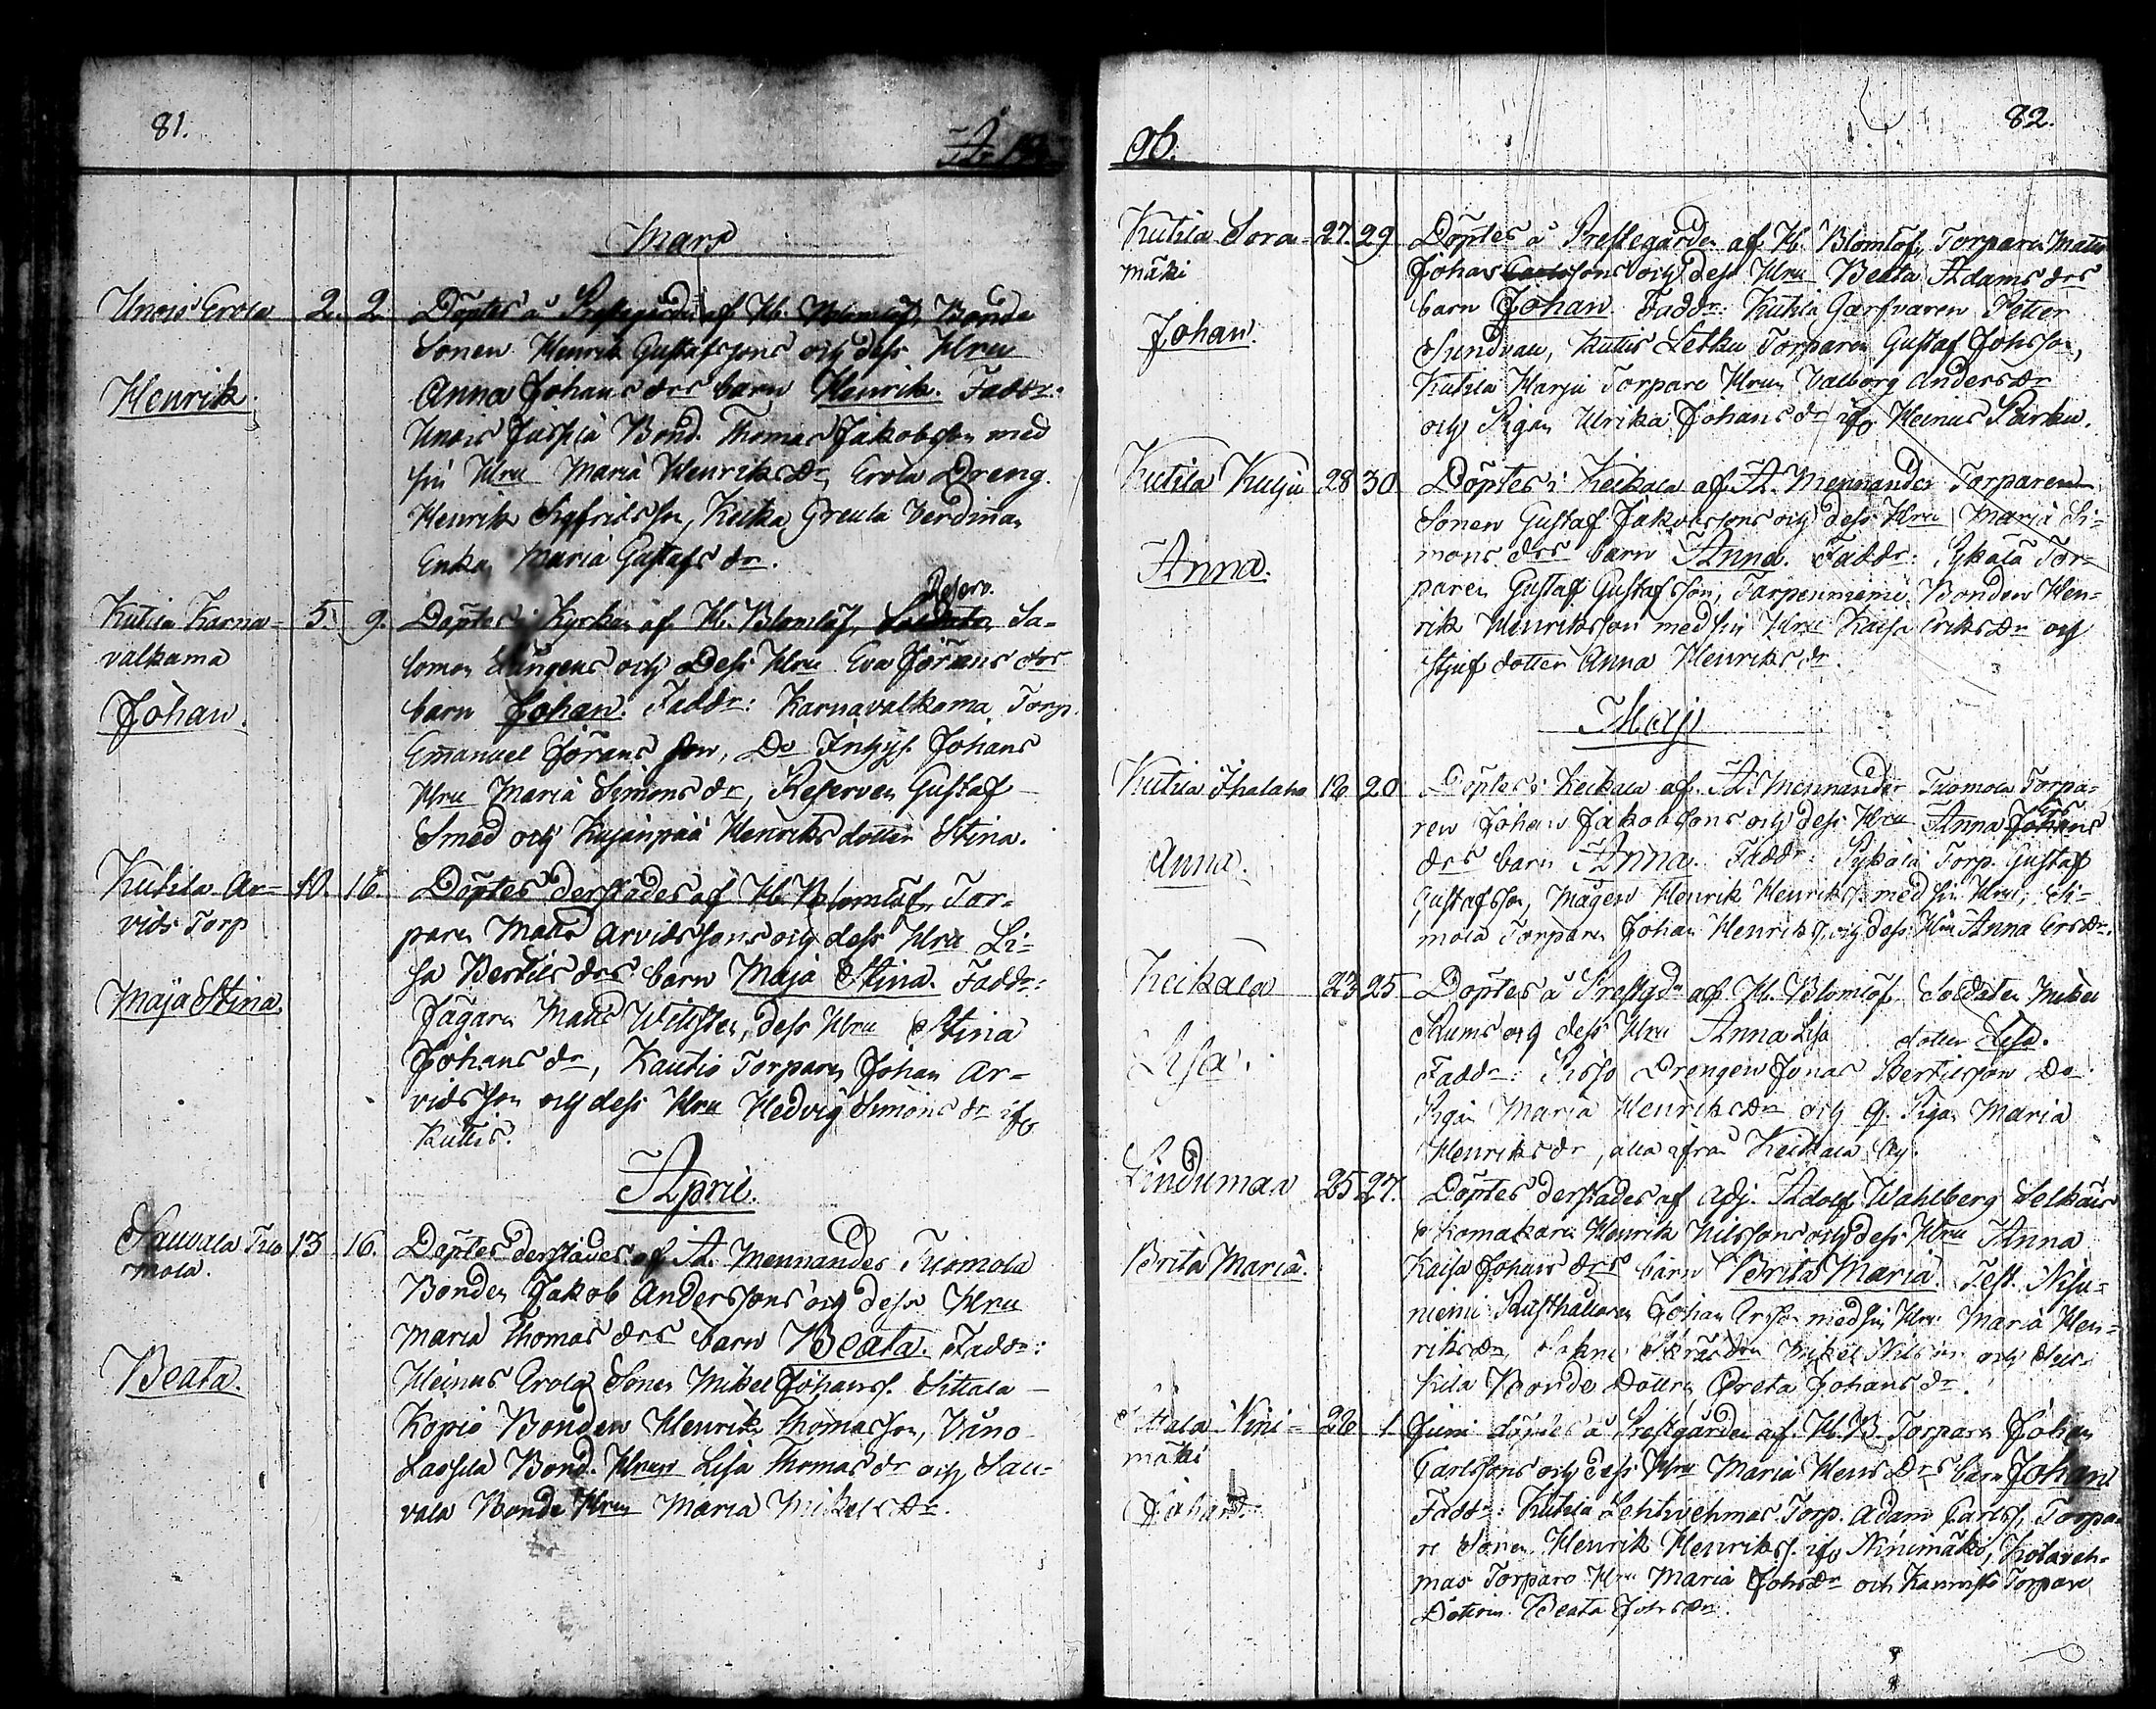 81.
År 18
Mars
Unois Erola 2. 2. Döptes å Prestegården af Hr. Blomlöf, Bonde
Sonen Henrik Gustafssons och dess Hru
Henrik. Anna Johans drs barn Henrik. Faddr:
Unois Jussila Bond. Thomas Jakobsson med
sin Hru Maria Henriksdr, Erola Dreng
Henrik Sigfridsson, Keika Greula Verdinnan
Enkan Maria Gustafs dr.
Reserv.
Kutila Karna= 5. 9. Döptes i Kyrkan af Hr. Blomlöf, Sa=
valkama lomon Långens och Dess Hru Eva Jörans drs
Johan. barn Johan. Faddr: Karnavalkama Torp.
Emanuel Jörans son, Do Inhys. Johans
Hru Maria Simons dr, Reserven Gustaf
Smed och Kujanpää Henriks dotter Stina.
Kutila Ar= 10. 16. Döptes derstädes af Hr Blomlöf, Tor=
vids Torp paren Matts Arvidssons och dess Hru Li=
sa Bertils drs barn Maja Stina. Faddr:
Maja Stina. Jägaren Matts Willsten, dess Hru Stina
Johans dr, Kautio Torparen Johan Ar=
vidsson och dess Hru Hedvig Simons dr ifr
Kuttis.
April.
Sauvala Tuo 13 16. Döptes derstädes af A. Mennander Tuomola
mola. Bonden Jakob Anderssons och dess Hru
Maria Thomas drs barn Beata. Faddr:
Beata. Heinus Erola Sonen Mikel Johanss. Sittala
Köpis Bonden Henrik Thomasson, Våno
Lassila Bond. Hrun Lisa Thomas dr och Sau=
vala Bonde Hrun Maria Mikels dr.
06. 82.
Kutila Sora= 27. 29 Döptes å Prestegården af Hr. Blomlöf, Torparen Matts
mäki Johanssons och dess Hru Beata Adams drs
barn Johan. Faddr: Kutila Garfvaren Petter
Johan. Sundvall, Kuttis Letku Torparen Gustaf Johsson,
Kutila Harju Torpare Hrun Valborg Anders dr
och Pigan Ulrika Johans dr ifr Heinus Parku.
Kutila Kulju 28 30. Döptes i Keikala af A. Mennander Torparen
Sonen Gustaf Jakobssons och dess Hru Maria Si=
Anna. mons drs barn Anna. Faddr: Pykälä Tor=
paren Gustaf Gustafsson, Tarpenniemi Bonden Hen=
rik Henriksson med sin Hru Kaisa Eriks dr och
stjuf dotter Anna Henriks dr.
Maji
Kutila Ihalaha 16 20 Döptes i Keikala af A. Mennander Tuomola Torpa=
ren Johan Jakobssons och dess Hru Anna Johans
Anna. drs barn Anna. Faddr: Pykälä Torp. Gustaf
Gustafsson, Mågen Henrik Henrikss. med sin Hru, Si=
mola Torparen Johan Henrikss. och dess Hru Anna Ersdr.
Keikala 23 25 Döptes å Prestgdn af Hr. Blomlöf, Soldaten Mikel
Rums och dess Hru Anna Lisa dotter Lisa.
Lisa. Faddr: Drengen Jonas Bertilsson Do
Pigan Maria Henriks dr och G. Pigan Maria
Henriks dr, alla ifrån Keikala By.
Linduman 25 27. Döptes derstädes af Adj. Adolf Wahlberg Selkäis
Skomakare Henrik Nilssons och dess Hru Anna
Brita Maria. Kaisa Johans drs barn Brita Maria. Test. Nisu=
niemi Rusthållaren Johan Ersson med sin Hru Maria Hen=
riks dr, Mikel Nilsson och
kila Bonde Dottren Greta Johans dr.
Nini= 26 1. Juni döptes å Prestgården af Hr. B. Torparen Johan
mäki Carlssons och dess Hru Maria Henrs drs barn Johan
Johan. Faddr: Kutila Lehtvehmas Torp. Adam Carlss, Torpa
re Sonen Henrik Henrikss. ifr Ninimäki, Kotaveh=
mas Torpare Hru Maria Johsdr och Torpare
Dottren Beata Johsdr.